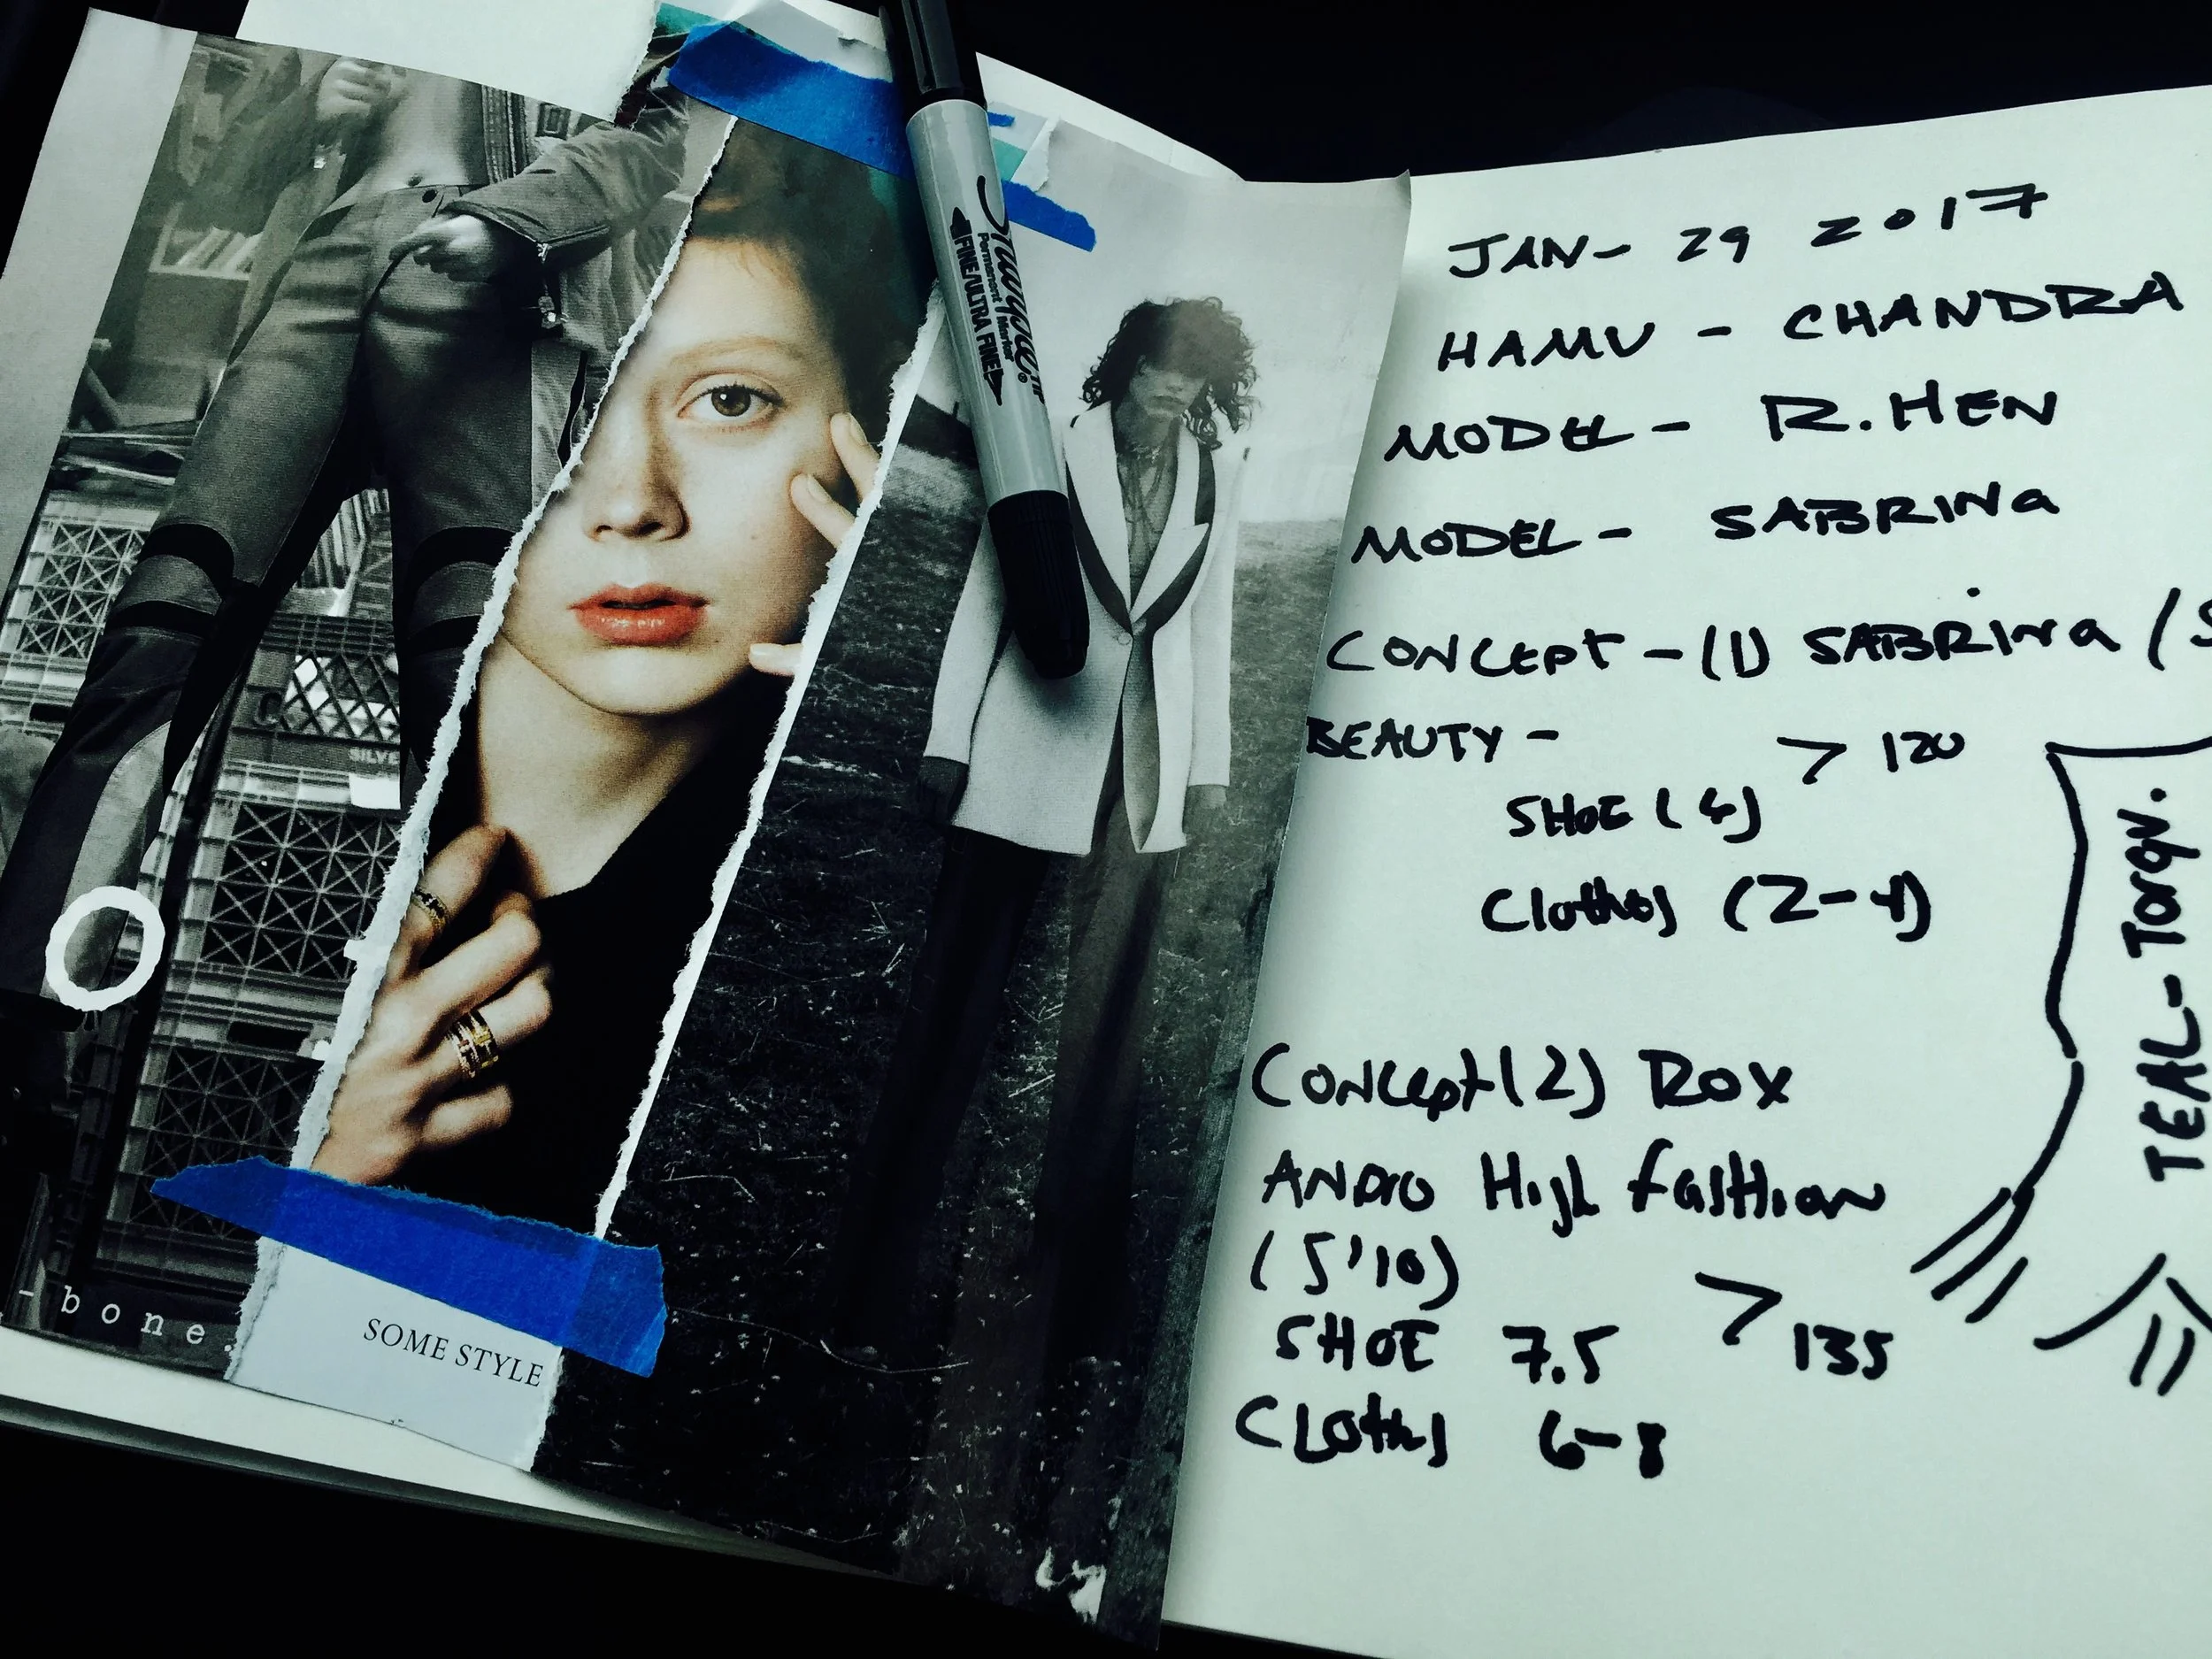 -bone.
SOME STYLE
Sharpie®
Permanent Marker
FINE/ULTRA FINE
JAN- 29 2017
HAMU - CHANDRA
MODEL - R.HEN
MODEL - SABRINa
CONCEPT - (1) SABRINa (S
BEAUTY - > 120
SHOE (4)
Clothes (2-4)
CONCEPT (2) ROX
ANDRO HIgh FaSHION
(5'10)
SHOE 7.5 > 135
CLOTHES 6-8
TEAL - TORQU.
SILVE